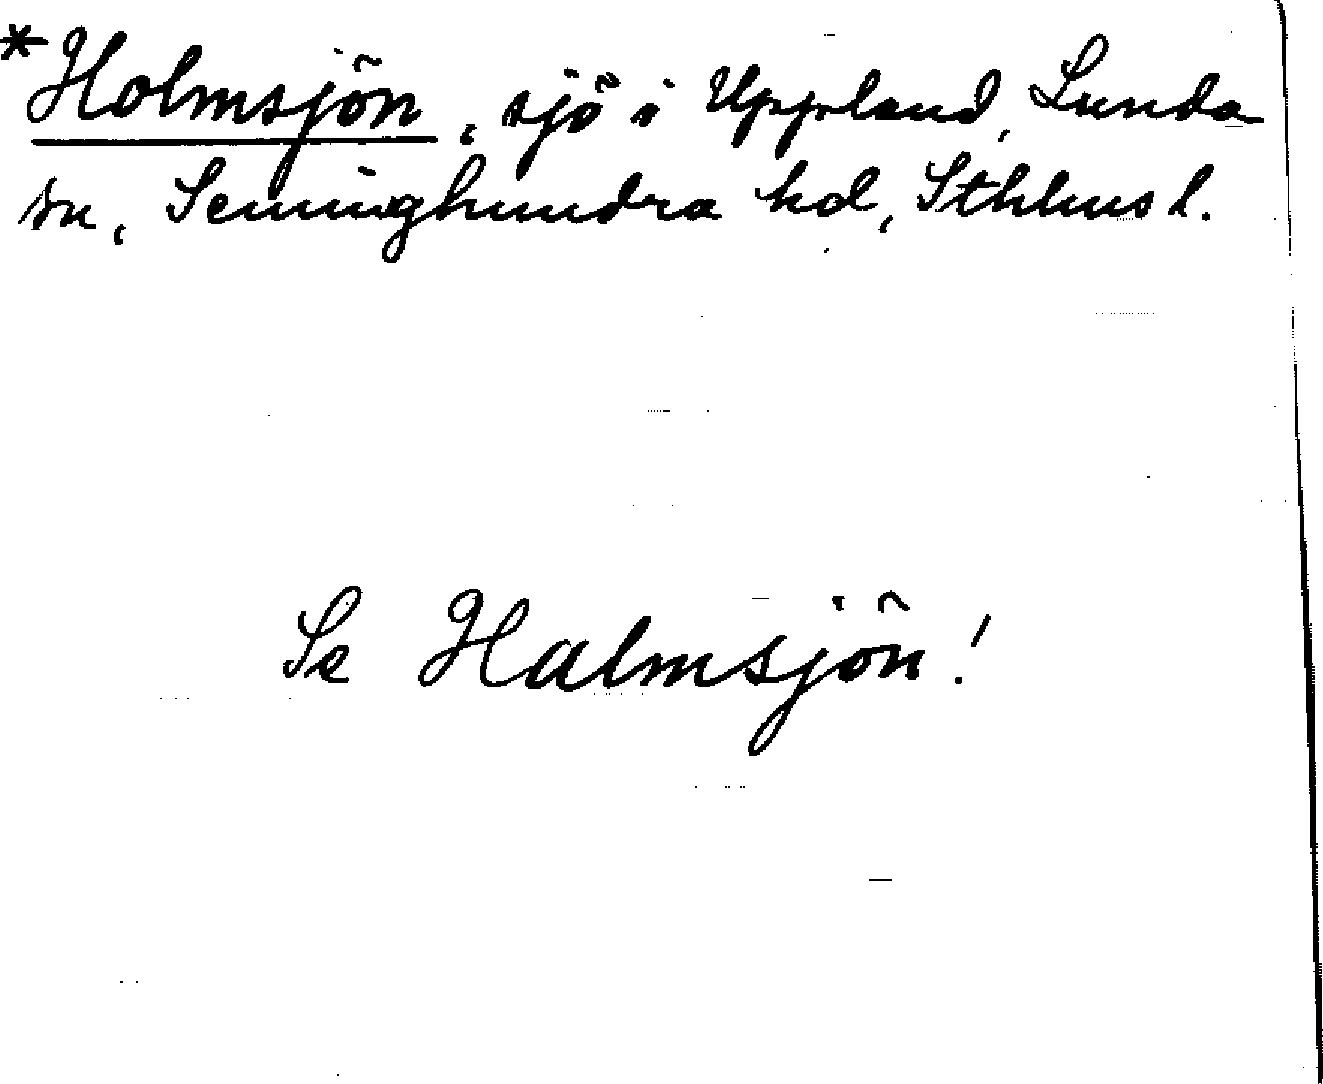 *Holmsjön, sjö i Uppland, Lunda
sn, Seminghundra hd, Sthlms l.
Se Halmsjön!